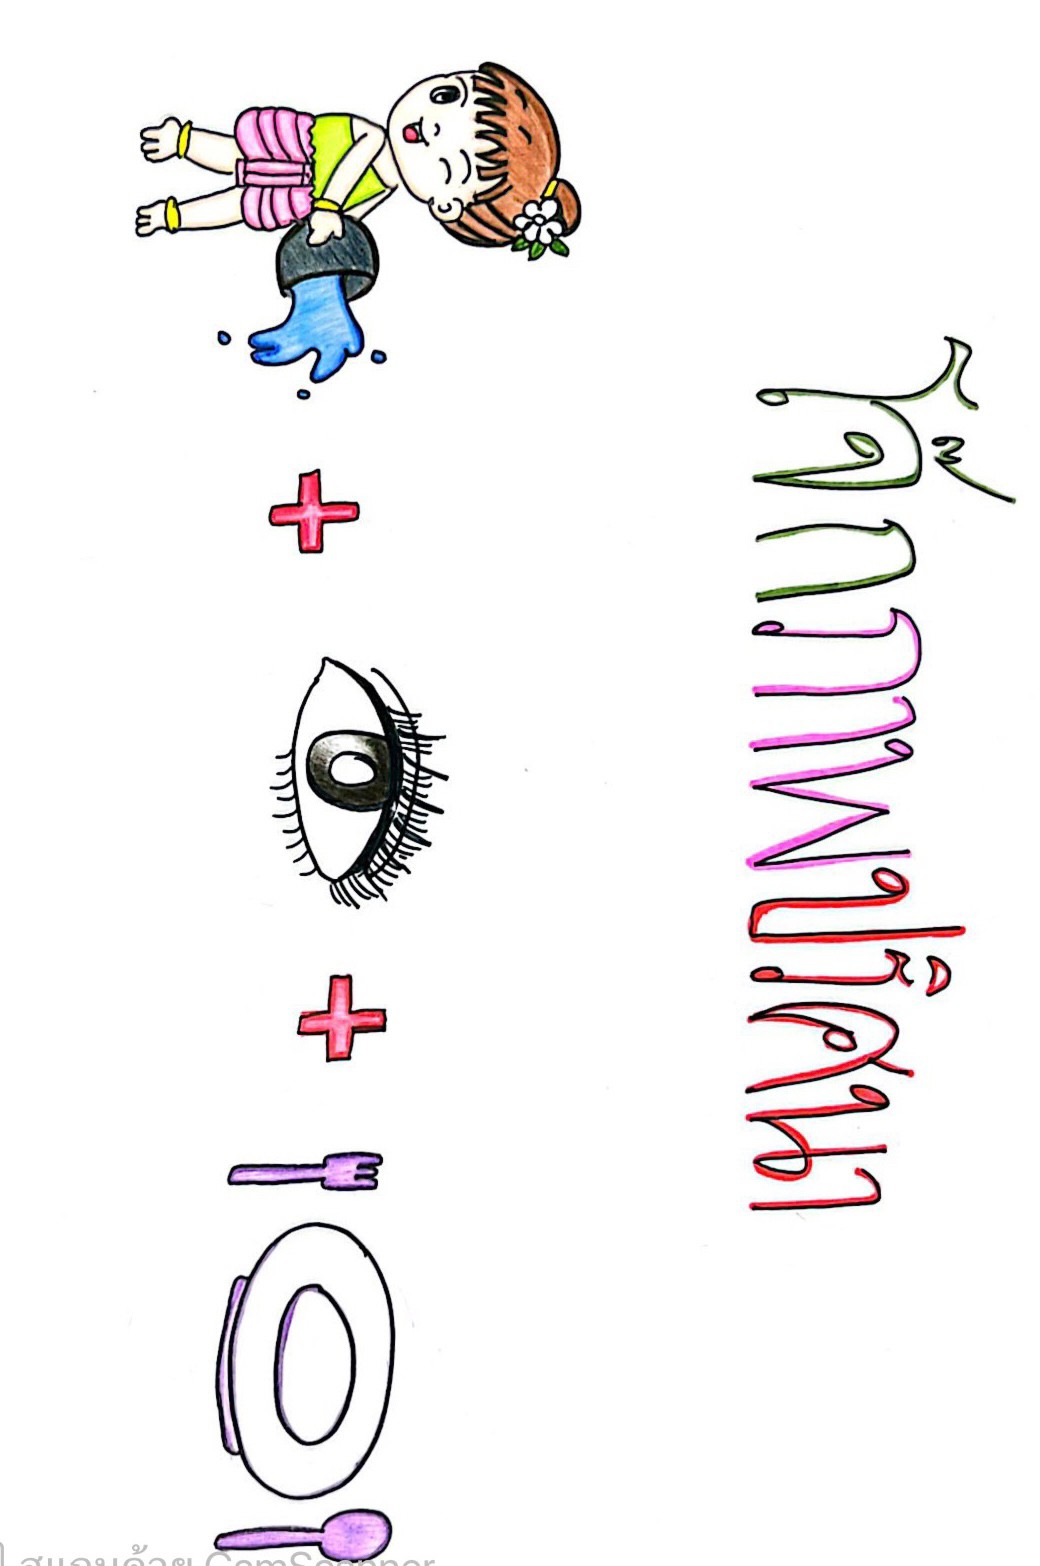 โจ๊กภาพปริศนา
สแกนด้วย CamScanner